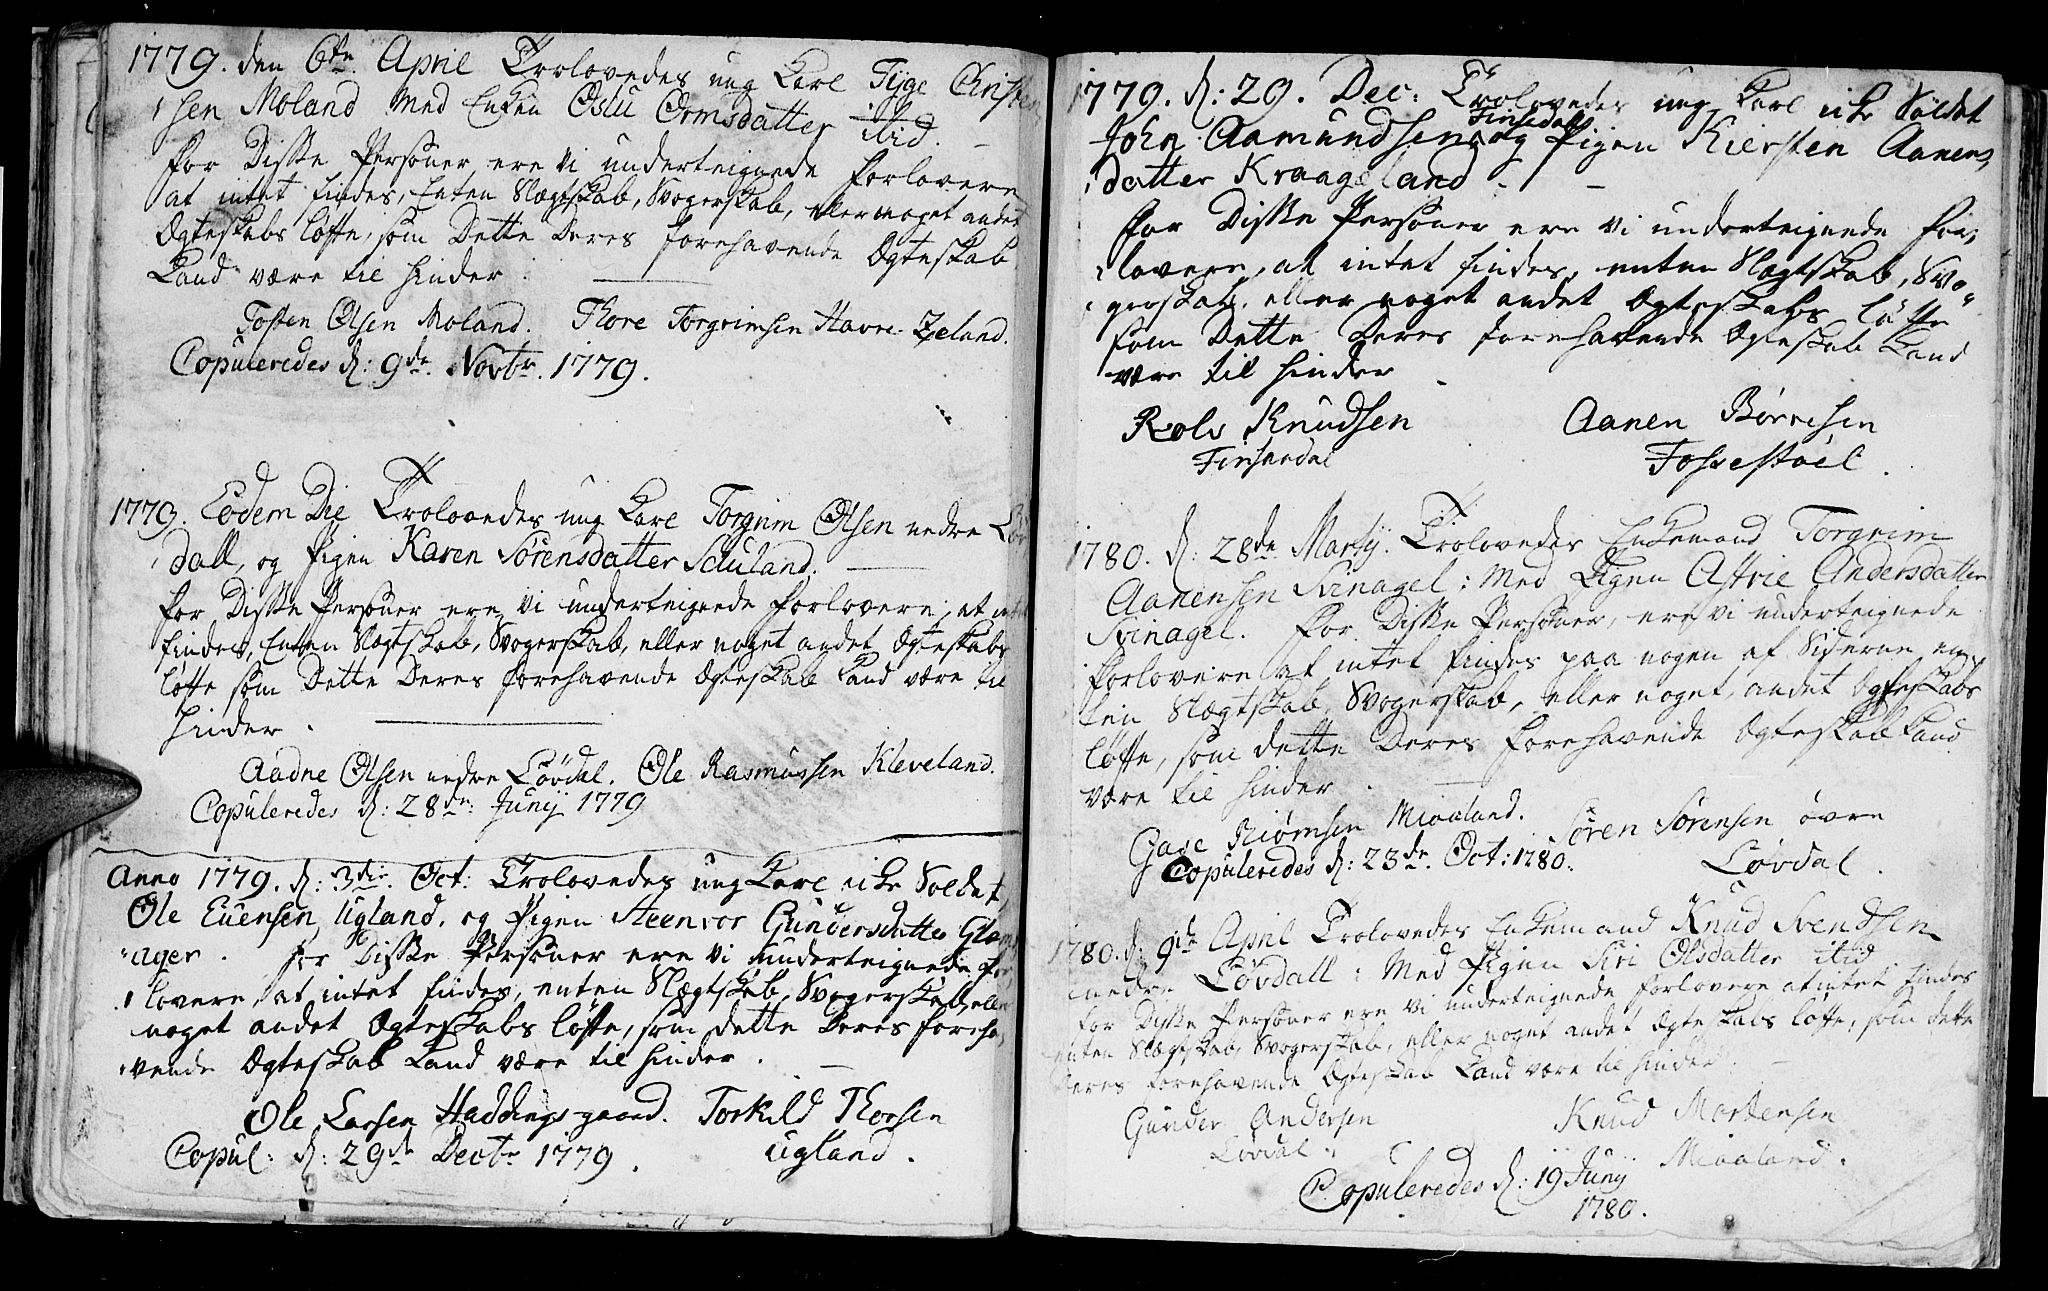 1779. den 6te April Trolovedes ung Karl Tÿge Christen
sen Moland med Enken Oslu Ormsdatter itid.
for Disse Personer ere Vi underteignede Forlovere
at intet findes, Enten Slægtskab, Svogerskab, eller noget andet
Ægteskabs løfte, som Dette Deres forehavende Ægteskab
Kand være til hinder.
Tosten Olsen Moland. Thore Torgrimsen Havre-Zeland.
Copuleredes d: 9de Novbr. 1779.
1779. Eodem Die Trolovedes ung Karl Torgrim Olsen nedre Løv
dall, og Pigen Karen Sørensdatter
for Disse Personer ere Vi underteignede Forlovere, at intet
findes, Enten Slægtskab, Svogerskab, eller noget andet Ægteskabs
løfte som Dette Deres forehavende Ægteskab Kand være til
hinder.
Aadne Olsen nedre Løvdal. Ole Rasmussen Kleveland.
Copuleredes d: 28de Junij 1779
Anno 1779. d: 3die Oct: Trolovedes ung Karl icke Soldat
Ole Euensen Ugland, og Pigen Steenvor Gundersdatter Glams
ager. for Disse Personer ere Vi underteignede For
lovere, at intet findes, enten Slægtskab, Svogerskab, eller
noget andet Ægteskabs løfte, som dette Deres foreha
vende Ægteskab Kand være til hinder.
Ole Larsen Haddings-gaard. Torkild Thorsen
Copul: d: 29de Decbr 1779. Ugland.
1779. d: 29. Dec: Trolovedes ung Karl icke Soldat
Finsedal
John Aamundsen og Pigen Kiersten Aanens
datter Kraageland.
for Disse Personer ere Vi underteignede For
lovere, at intet findes, enten Slægtskab, Svo
gerskab, eller noget andet Ægteskabs løfte
som Dette Deres forehavende Ægteskab Kand
være til hinder.
Rolv Knudsen Aanen Børresen
Finsendal Fossestøel.
1780. d: 28de Martij. Trolovedes Enkemand Torgrim
Aanensen Svinagel: med Pigen Astrie Andersdatter
Svinagel. for Disse Personer, ere vi underteignede
Forlovere at intet findes paa nogen af Siderne, en
ten Slægtskab, Svogerskab, eller noget andet Ægteskabs
løfte, som dette Deres forehavende Ægteskab Kand
være til hinder.
Biørnsen Miaaland. Sören Sörensen øvre
Copuleredes d: 23de Oct: 1780. Løvdal.
1780. d: 9de April Trolovedes Enkemand Knud Svendsen
nedre Løvdall: Med Pigen Siri Olsdatter itid.
for Disse Personer ere vi underteignede Forlovere at intet findes
enten Slægtskab, Svogerskab, eller noget andet Ægteskabs løfte, som dette
Deres forehavende Ægteskab Kand være til hinder.
Gunder Andersen Knud Mortensen
Løvdal. Miaaland.
Copuleredes d: 19 Junij
1780.